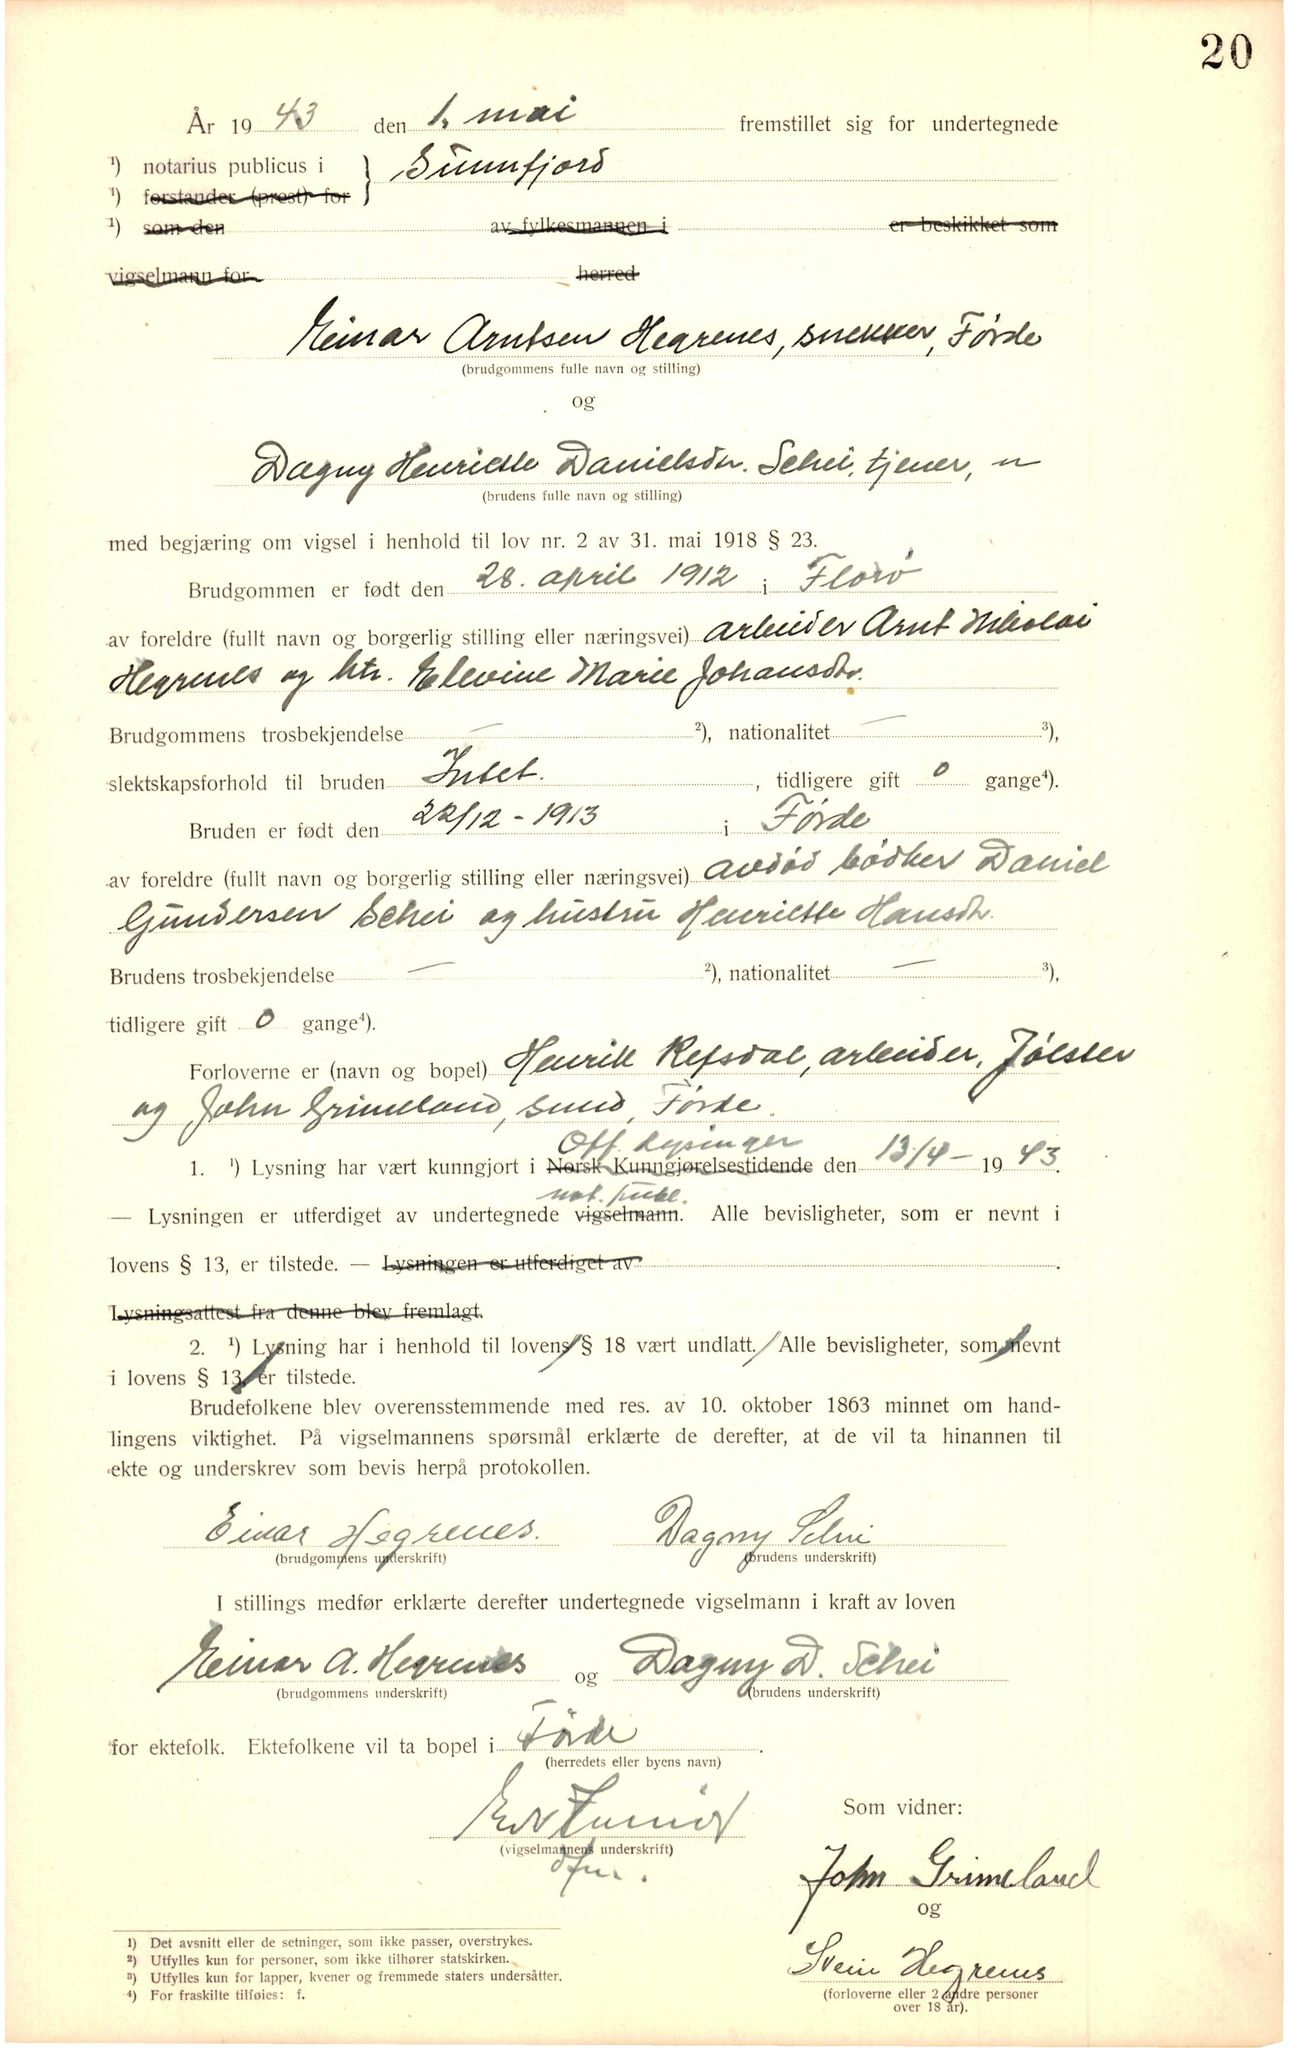 20
År 1943 den 1. mai fremstillet sig for undertegnede
¹) notarius publicus i } Sunnfjord
¹) forstander (prest) for
¹) som den av fylkesmannen i er beskikket som
vigselmann for herred
Einar Arntsen Hegrenes, snekker, Førde
(brudgommens fulle navn og stilling)
og
Dagny Henriette Danielsdr. Schei, tjener, "
(brudens fulle navn og stilling)
med begjæring om vigsel i henhold til lov nr. 2 av 31. mai 1918 § 23.
Brudgommen er født den 28. april 1912 i Florø
av foreldre (fullt navn og borgerlig stilling eller næringsvei) arbeider Arnt Nikolai
Hegrenes og htr. Elevine Marie Johansdtr.
Brudgommens trosbekjendelse — ²), nationalitet — ³),
slektskapsforhold til bruden Intet. , tidligere gift 0 gange⁴).
Bruden er født den 22/12 - 1913 i Førde
av foreldre (fullt navn og borgerlig stilling eller næringsvei) avdød bødker Daniel
Gundersen Schei og hustru Henriette Hansdtr.
Brudens trosbekjendelse — ²), nationalitet — ³),
tidligere gift 0 gange⁴).
Forloverne er (navn og bopel) Henrik Refsdal, arbeider, Jølster
og John Grimeland, smed, Førde.
Off. lysinger
1. ¹) Lysning har vært kunngjort i Norsk Kunngjørelsestidende den 13/4 - 1943.
not. publ.
— Lysningen er utferdiget av undertegnede vigselmann. Alle bevisligheter, som er nevnt i
lovens § 13, er tilstede. — Lysningen er utferdiget av .
Lysningsattest fra denne blev fremlagt.
2. ¹) Lysning har i henhold til lovens § 18 vært undlatt. Alle bevisligheter, som nevnt
i lovens § 13, er tilstede.
Brudefolkene blev overensstemmende med res. av 10. oktober 1863 minnet om hand-
lingens viktighet. På vigselmannens spørsmål erklærte de derefter, at de vil ta hinannen til
ekte og underskrev som bevis herpå protokollen.
Einar Hegrenes. Dagny Schei
(brudgommens underskrift) (brudens underskrift)
I stillings medfør erklærte derefter undertegnede vigselmann i kraft av loven
Einar A. Hegrenes og Dagny D. Schei
(brudgommens underskrift) (brudens underskrift)
for ektefolk. Ektefolkene vil ta bopel i Førde .
(herredets eller byens navn)
(vigselmannens underskrift)
Som vidner:
John Grimeland
og
Svein Hegrenes
(forloverne eller 2 andre personer
over 18 år).
1) Det avsnitt eller de setninger, som ikke passer, overstrykes.
2) Utfylles kun for personer, som ikke tilhører statskirken.
3) Utfylles kun for lapper, kvener og fremmede staters undersåtter.
4) For fraskilte tilføies: f.